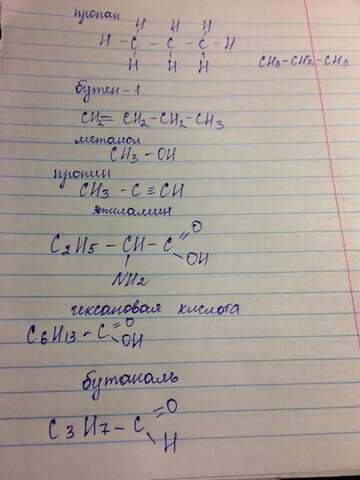 пропан
H H H
H - C - C - C - H
H H H
CH3-CH2-CH3
бутен-1
CH2= CH2-CH2-CH3
метанол
CH3-OH
пропин
CH3 - C ≡ CH
этиламин
C2H5 - CH - C =O
OH
NH2
гексановая кислота
C6H13 - C =O
OH
бутаналь
C3H7 - C =O
H